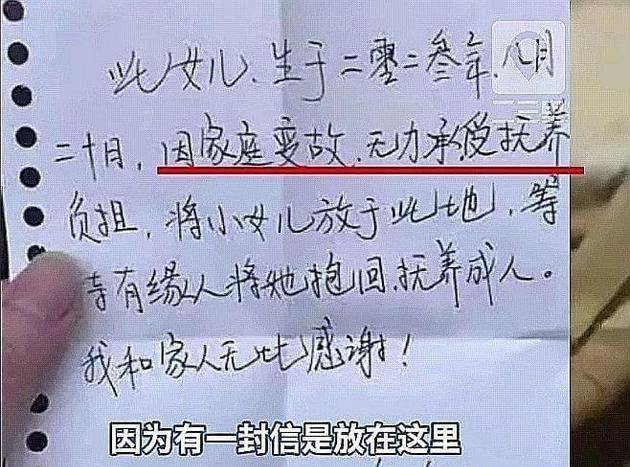 此女儿、生于二零二叁年、八月
二十日，因家庭变故、无力承受抚养
负担，将小女儿放于此地，等
待有缘人将她抱回、抚养成人。
我和家人无比感谢！
因为有一封信是放在这里